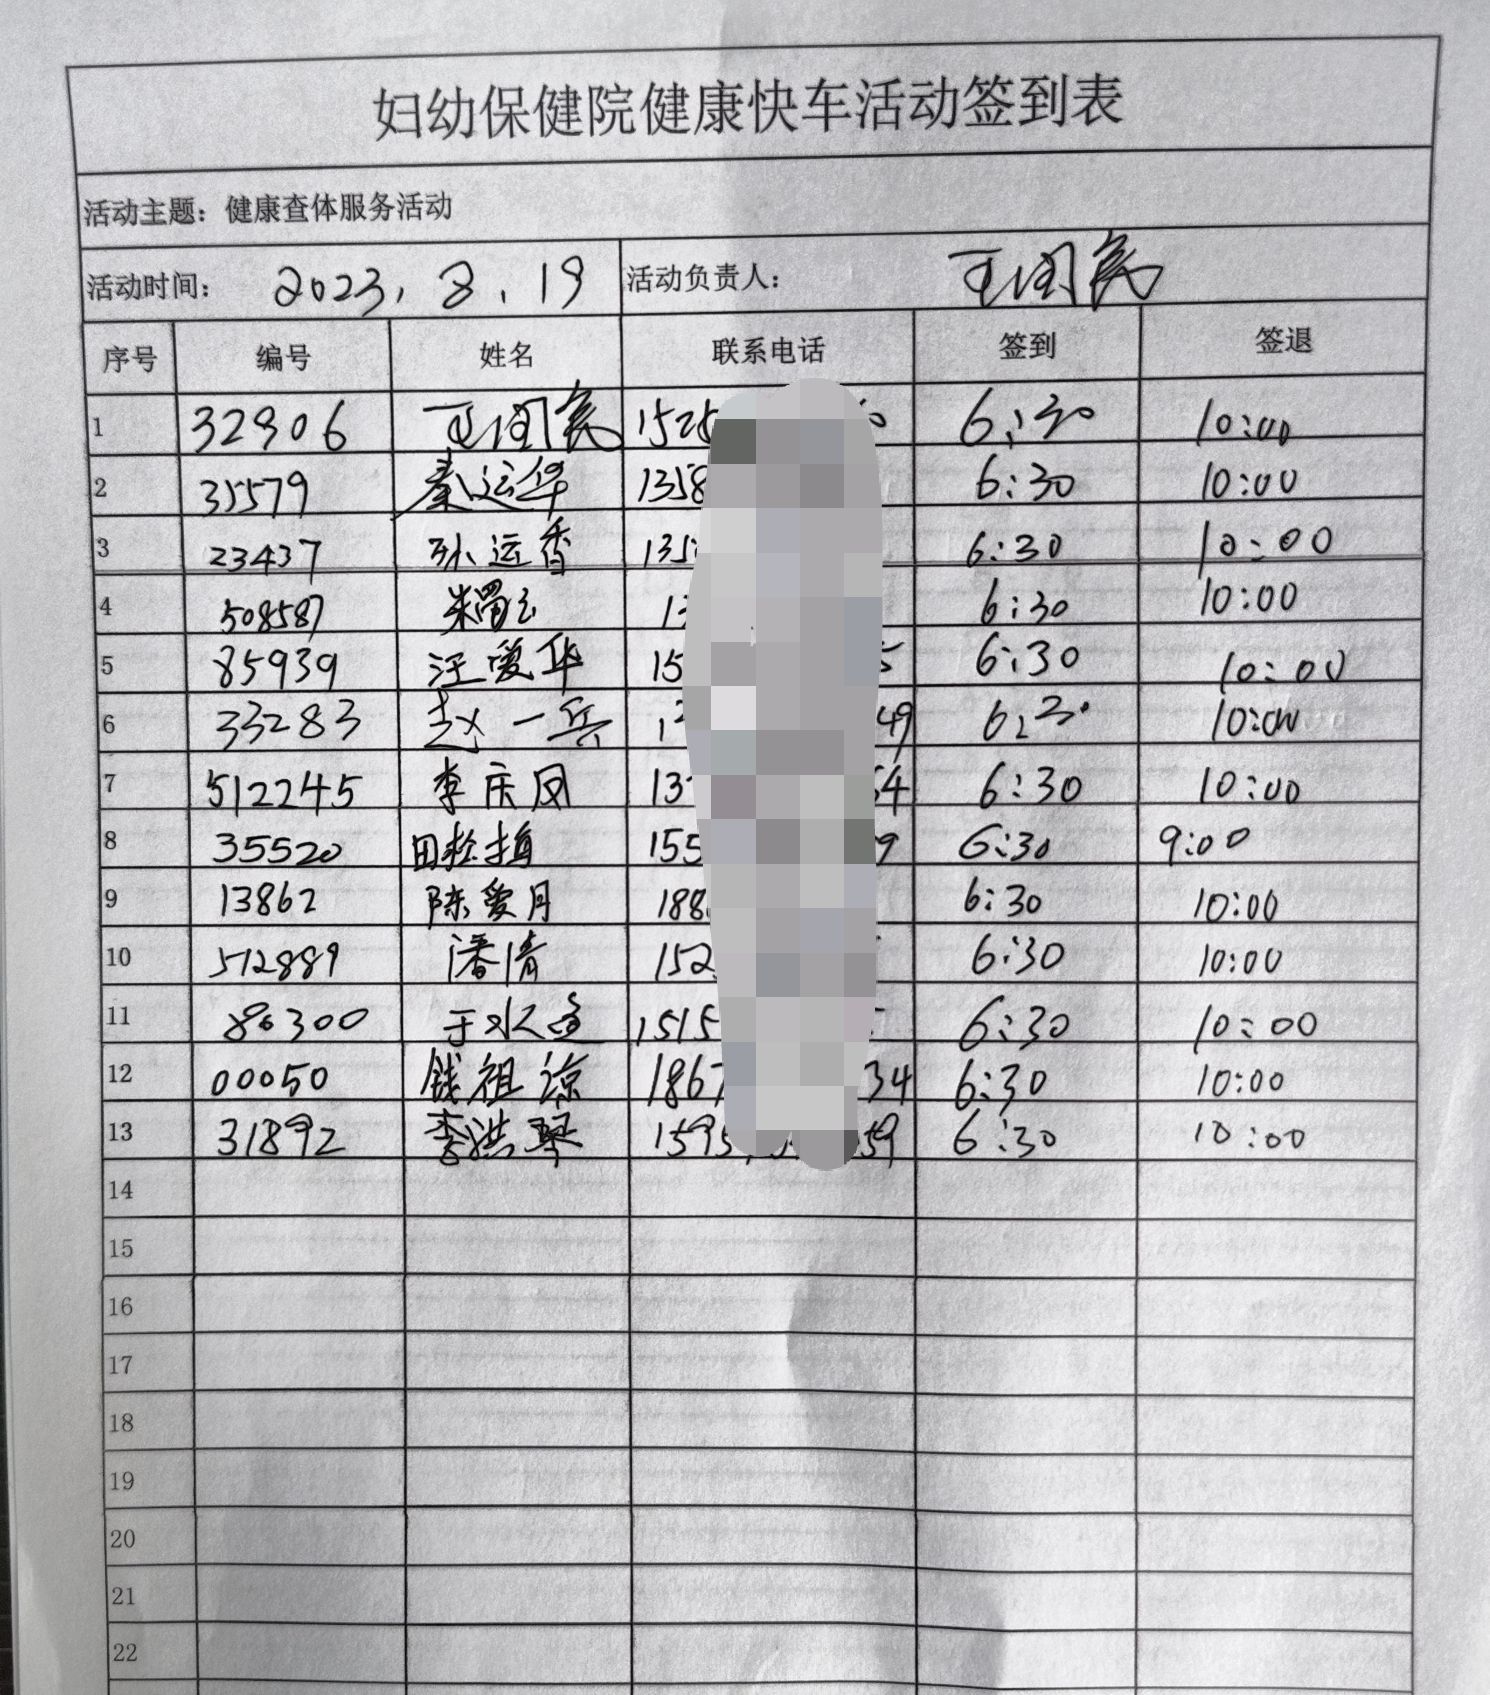 妇幼保健院健康快车活动签到表
活动主题：健康查体服务活动
活动时间： 2023，8，19 活动负责人： 王国民
序号 编号 姓名 联系电话 签到 签退
1 32906 王国民 152 6:30 10:00
2 35579 秦运华 1358 6:30 10:00
3 23437 孙运香 135 6:30 10:00
4 508587 13 6:30 10:00
5 85939 汪爱华 15 6:30 10:00
6 33283 赵一兵 49 6:30 10:00
7 512245 李庆凤 13 54 6:30 10:00
8 35520 田 155 9 6:30 9:00
9 13862 陈爱月 188 6:30 10:00
10 512889 潘清 152 6:30 10:00
11 80300 于 1515 6:30 10:00
12 00050 钱祖谅 1867 34 6:30 10:00
13 31892 李洪琴 1595 59 6:30 10:00
14
15
16
17
18
19
20
21
22